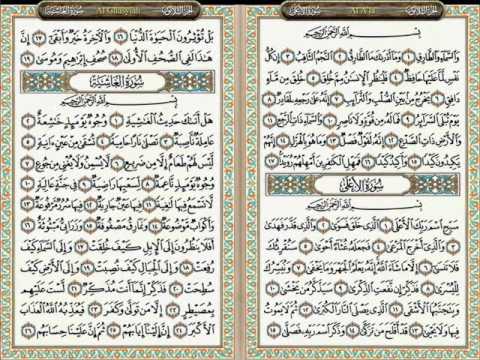 الجزء الثلاثون Al A'la سورة الأعلى
بِسْمِ اللَّهِ الرَّحْمَٰنِ الرَّحِيمِ
وَالسَّمَاءِ وَالطَّارِقِ ١ وَمَا أَدْرَاكَ مَا الطَّارِقُ ٢ النَّجْمُ الثَّاقِبُ ٣ إِن كُلُّ
نَفْسٍ لَّمَّا عَلَيْهَا حَافِظٌ ٤ فَلْيَنظُرِ الْإِنسَانُ مِمَّ خُلِقَ ٥ خُلِقَ مِن مَّاءٍ
دَافِقٍ ٦ يَخْرُجُ مِن بَيْنِ الصُّلْبِ وَالتَّرَائِبِ ٧ إِنَّهُ عَلَىٰ رَجْعِهِ لَقَادِرٌ ٨
يَوْمَ تُبْلَى السَّرَائِرُ ٩ فَمَا لَهُ مِن قُوَّةٍ وَلَا نَاصِرٍ ١٠ وَالسَّمَاءِ ذَاتِ الرَّجْعِ ١١
وَالْأَرْضِ ذَاتِ الصَّدْعِ ١٢ إِنَّهُ لَقَوْلٌ فَصْلٌ ١٣ وَمَا هُوَ بِالْهَزْلِ ١٤ إِنَّهُمْ
يَكِيدُونَ كَيْدًا ١٥ وَأَكِيدُ كَيْدًا ١٦ فَمَهِّلِ الْكَافِرِينَ أَمْهِلْهُمْ رُوَيْدًا ١٧
سُورَةُ الأَعْلَى
بِسْمِ اللَّهِ الرَّحْمَٰنِ الرَّحِيمِ
سَبِّحِ اسْمَ رَبِّكَ الْأَعْلَى ١ الَّذِي خَلَقَ فَسَوَّىٰ ٢ وَالَّذِي قَدَّرَ فَهَدَىٰ
٣ وَالَّذِي أَخْرَجَ الْمَرْعَىٰ ٤ فَجَعَلَهُ غُثَاءً أَحْوَىٰ ٥ سَنُقْرِئُكَ
فَلَا تَنسَىٰ ٦ إِلَّا مَا شَاءَ اللَّهُ إِنَّهُ يَعْلَمُ الْجَهْرَ وَمَا يَخْفَىٰ ٧ وَنُيَسِّرُكَ
لِلْيُسْرَىٰ ٨ فَذَكِّرْ إِن نَّفَعَتِ الذِّكْرَىٰ ٩ سَيَذَّكَّرُ مَن يَخْشَىٰ ١٠
وَيَتَجَنَّبُهَا الْأَشْقَى ١١ الَّذِي يَصْلَى النَّارَ الْكُبْرَىٰ ١٢ ثُمَّ لَا يَمُوتُ
فِيهَا وَلَا يَحْيَىٰ ١٣ قَدْ أَفْلَحَ مَن تَزَكَّىٰ ١٤ وَذَكَرَ اسْمَ رَبِّهِ فَصَلَّىٰ ١٥
الجزء الثلاثون Al Ghasyiah سورة الغاشية
بَلْ تُؤْثِرُونَ الْحَيَاةَ الدُّنْيَا ١٦ وَالْآخِرَةُ خَيْرٌ وَأَبْقَىٰ ١٧ إِنَّ
هَٰذَا لَفِي الصُّحُفِ الْأُولَىٰ ١٨ صُحُفِ إِبْرَاهِيمَ وَمُوسَىٰ ١٩
سُورَةُ الغَاشِيَةِ
بِسْمِ اللَّهِ الرَّحْمَٰنِ الرَّحِيمِ
هَلْ أَتَاكَ حَدِيثُ الْغَاشِيَةِ ١ وُجُوهٌ يَوْمَئِذٍ خَاشِعَةٌ ٢
عَامِلَةٌ نَّاصِبَةٌ ٣ تَصْلَىٰ نَارًا حَامِيَةً ٤ تُسْقَىٰ مِنْ عَيْنٍ آنِيَةٍ ٥
لَّيْسَ لَهُمْ طَعَامٌ إِلَّا مِن ضَرِيعٍ ٦ لَّا يُسْمِنُ وَلَا يُغْنِي مِن جُوعٍ ٧
وُجُوهٌ يَوْمَئِذٍ نَّاعِمَةٌ ٨ لِّسَعْيِهَا رَاضِيَةٌ ٩ فِي جَنَّةٍ عَالِيَةٍ ١٠
لَّا تَسْمَعُ فِيهَا لَاغِيَةً ١١ فِيهَا عَيْنٌ جَارِيَةٌ ١٢ فِيهَا سُرُرٌ مَّرْفُوعَةٌ ١٣
وَأَكْوَابٌ مَّوْضُوعَةٌ ١٤ وَنَمَارِقُ مَصْفُوفَةٌ ١٥ وَزَرَابِيُّ مَبْثُوثَةٌ ١٦
أَفَلَا يَنظُرُونَ إِلَى الْإِبِلِ كَيْفَ خُلِقَتْ ١٧ وَإِلَى السَّمَاءِ كَيْفَ
رُفِعَتْ ١٨ وَإِلَى الْجِبَالِ كَيْفَ نُصِبَتْ ١٩ وَإِلَى الْأَرْضِ كَيْفَ
سُطِحَتْ ٢٠ فَذَكِّرْ إِنَّمَا أَنتَ مُذَكِّرٌ ٢١ لَّسْتَ عَلَيْهِم
بِمُصَيْطِرٍ ٢٢ إِلَّا مَن تَوَلَّىٰ وَكَفَرَ ٢٣ فَيُعَذِّبُهُ اللَّهُ الْعَذَابَ
الْأَكْبَرَ ٢٤ إِنَّ إِلَيْنَا إِيَابَهُمْ ٢٥ ثُمَّ إِنَّ عَلَيْنَا حِسَابَهُم ٢٦